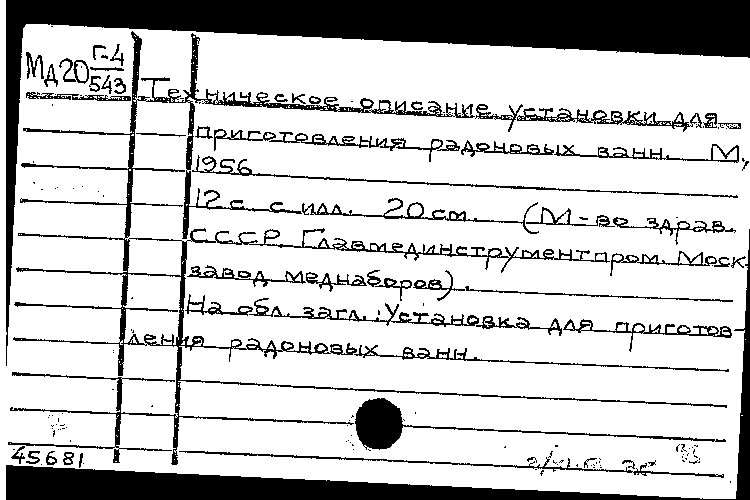 Мд20 Г-4/543
Техническое описание установки для
приготовления радоновых ванн. М.,
1956
12 с. с илл. 20 см. (М-во здрав.
СССР. Главмединструментпром. Моск.
завод меднаборов).
На обл. загл.: Установка для приготов-
ления радоновых ванн.
45681